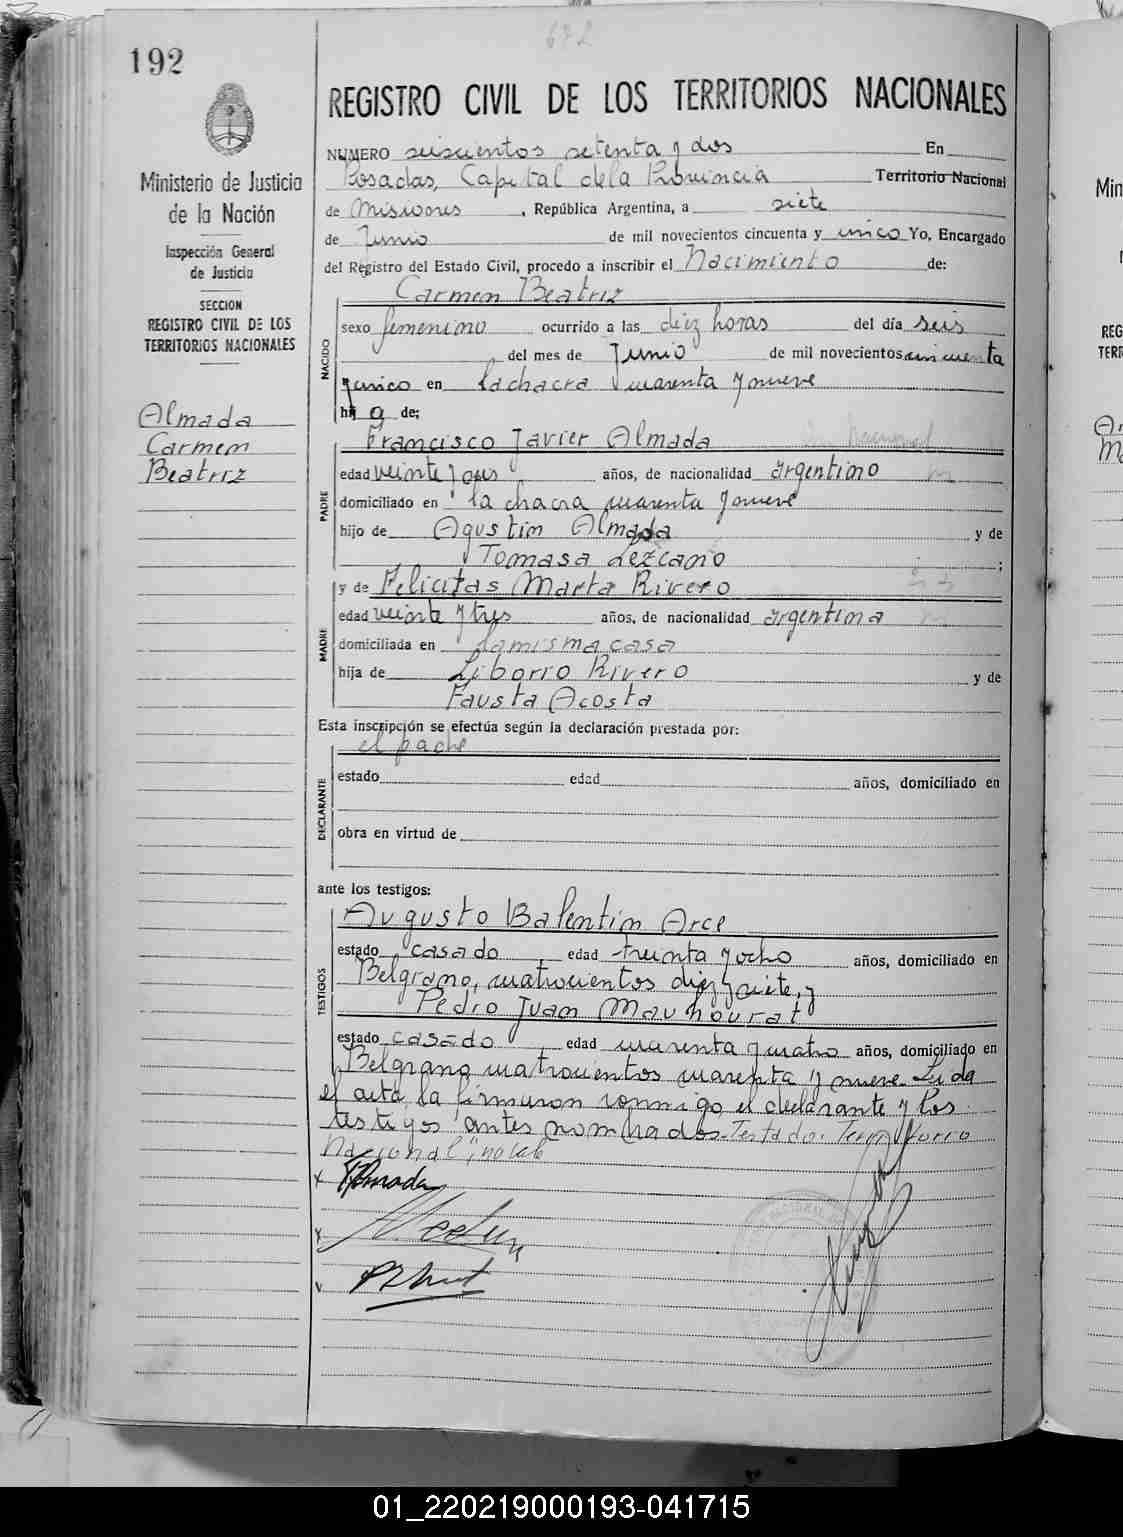 192
672
REGISTRO CIVIL DE LOS TERRITORIOS NACIONALES
Ministerio de Justicia
de la Nación
Inspección General
de Justicia
SECCION
REGISTRO CIVIL DE LOS
TERRITORIOS NACIONALES
Almada
Carmen
Beatriz
NUMERO seiscientos setenta y dos En
Posadas, Capital de la Provincia Territorio Nacional
de Misiones, República Argentina, a siete
de Junio de mil novecientos cincuenta y único Yo, Encargado
del Registro del Estado Civil, procedo a inscribir el Nacimiento de:
Carmen Beatriz
NACIDO
sexo femenino ocurrido a las diez horas del día seis
del mes de Junio de mil novecientos cincuenta
y único en la chacra cuarenta y nueve
hij a de:
Francisco Javier Almada
PADRE
edad veinte y años, de nacionalidad argentino
domiciliado en la chacra cuarenta y nueve
hijo de Agustin Almada y de
Tomasa Lezcano ;
y de Felicitas Marta Rivero
MADRE
edad veinte y tres años, de nacionalidad argentina
domiciliada en la misma casa
hija de Liborio Rivero y de
Fausta Acosta
Esta inscripción se efectúa según la declaración prestada por:
el padre
DECLARANTE
estado edad años, domiciliado en
obra en virtud de
ante los testigos:
Augusto Balentin Arce
TESTIGOS
estado casado, edad treinta y ocho años, domiciliado en
Belgrano, cuatrocientos diez y siete, y
Pedro Juan Mauhourat
estado casado, edad cuarenta y cuatro años, domiciliado en
Belgrano cuatrocientos cuarenta y nueve. Leida
el acta, la firmaron conmigo el declarante y los
testigos antes nombrados. Testado: Territorio
Nacional", no vale
01_220219000193-041715